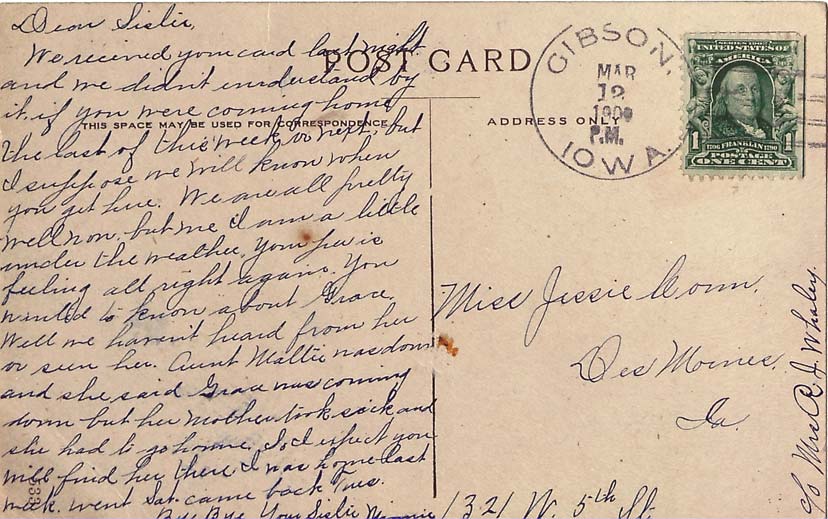 Dear Sister,
We received your card last night
and we didn't understand by
it, if you were coming home
the last of this week or next, but
I suppose we will know when
you get here. We are all pretty
well now, but me I am a little
under the weather, your is
feeling all right again. You
wanted to know about Grace.
Well we havent heard from her
or seen her. Aunt Mattie was down
and she said Grace was coming
down but her Mother took sick and
she had to go home. So I expect you
will find her there. I was home last
week. went Sat. came back Tues.
Bye Bye Your Sister
POST CARD
THIS SPACE MAY BE USED FOR CORRESPONDENCE
ADDRESS ONLY
GIBSON,
MAR
12
1909
P.M.
IOWA.
SERIES 1902
UNITED STATES OF
AMERICA
1 1706 FRANKLIN 1790 1
POSTAGE
ONE CENT
Miss Jessie Conn.
Des Moines.
Ia.
1321 W. 5th St.
c/o Mrs R. J. Whaley.